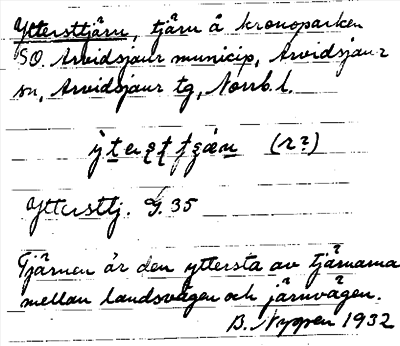 Yttersttjärn, tjärn å kronoparken
SO. Arvidsjaur municip, Arvidsjaur
sn, Arvidsjaur tg, Norrb. l.
(r?)
Yttersttj. G. 35
Tjärnen är den yttersta av tjärnarna
mellan landsvägen och järnvägen.
B. Nyppen 1932